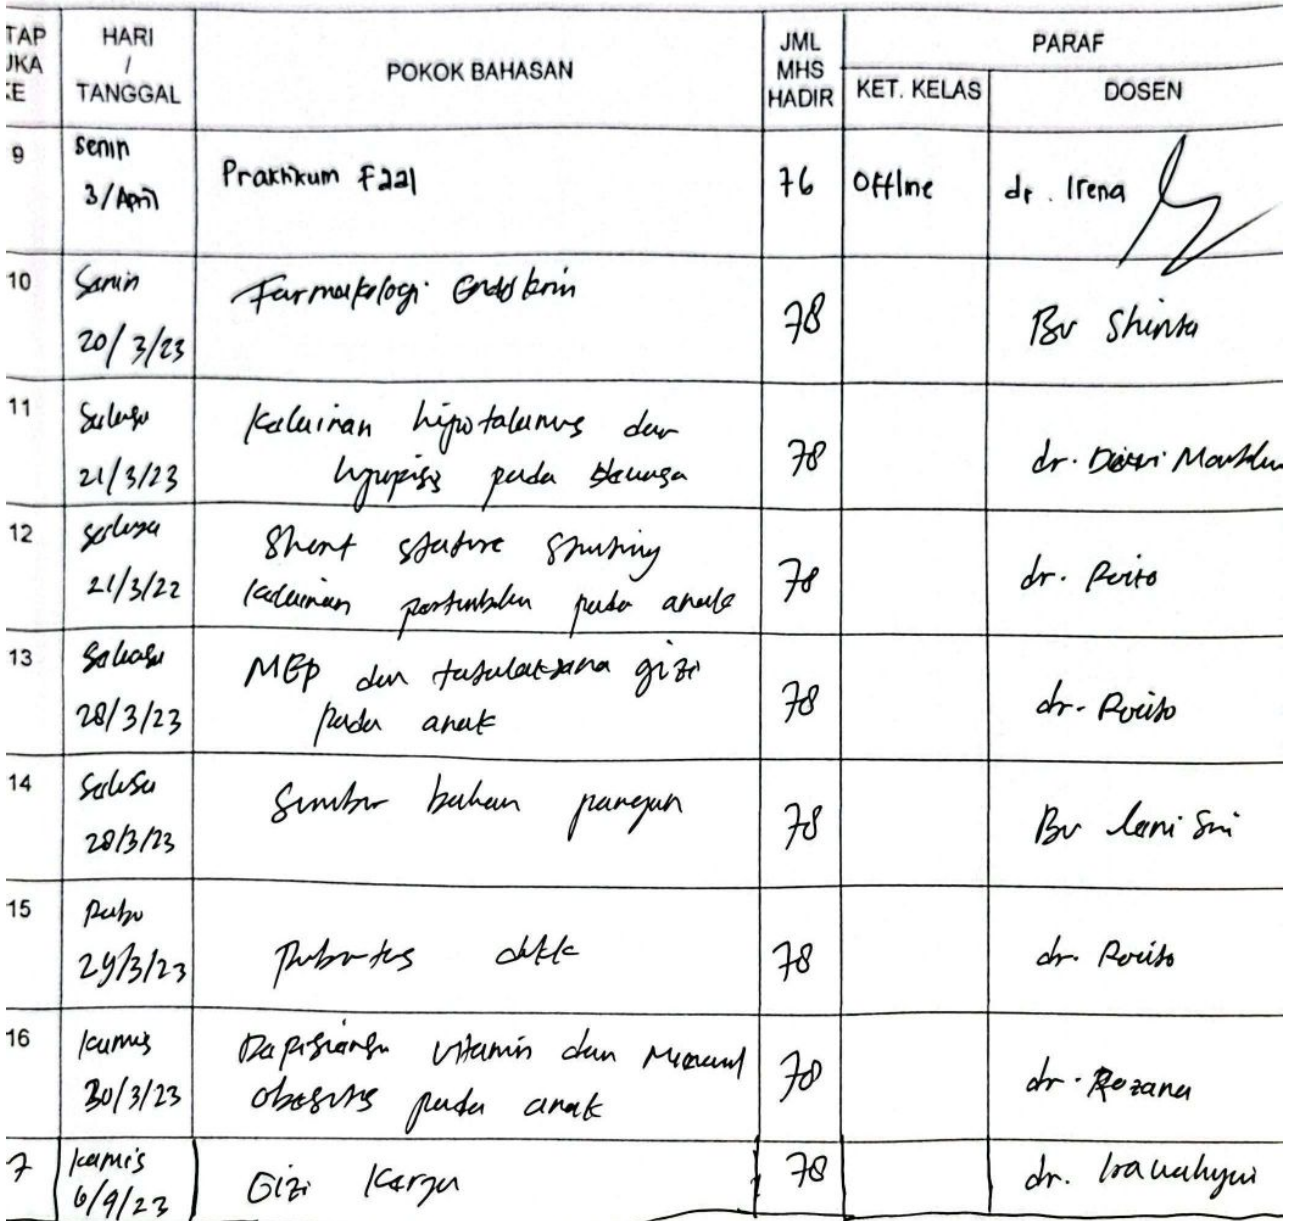 TAP
UKA
KE
HARI
/
TANGGAL
POKOK BAHASAN
JML
MHS
HADIR
PARAF
KET. KELAS
DOSEN
9
Senin
3/April
Praktikum Faal
76
Offline
dr. Irena
10
Senin
20/3/23
Farmakologi Endokrin
78
Bu Shinta
11
Selasa
21/3/23
Kelainan hipotalamus dan
hipofisis pada dewasa
78
dr.
12
Selasa
21/3/22
Short stature Stunting
kelainan pertumbuhan pada anak
78
dr.
13
Selasa
28/3/23
MEP dan tatalaksana gizi
pada anak
78
dr.
14
Selasa
28/3/23
Sumber bahan pangan
78
Bu
15
Rabu
29/3/23
Pubertas
78
dr.
16
Kamis
30/3/23
Defisiensi vitamin dan Mineral
obesitas pada anak
78
dr. Rozana
7
Kamis
6/9/23
Gizi Kerja
78
dr.